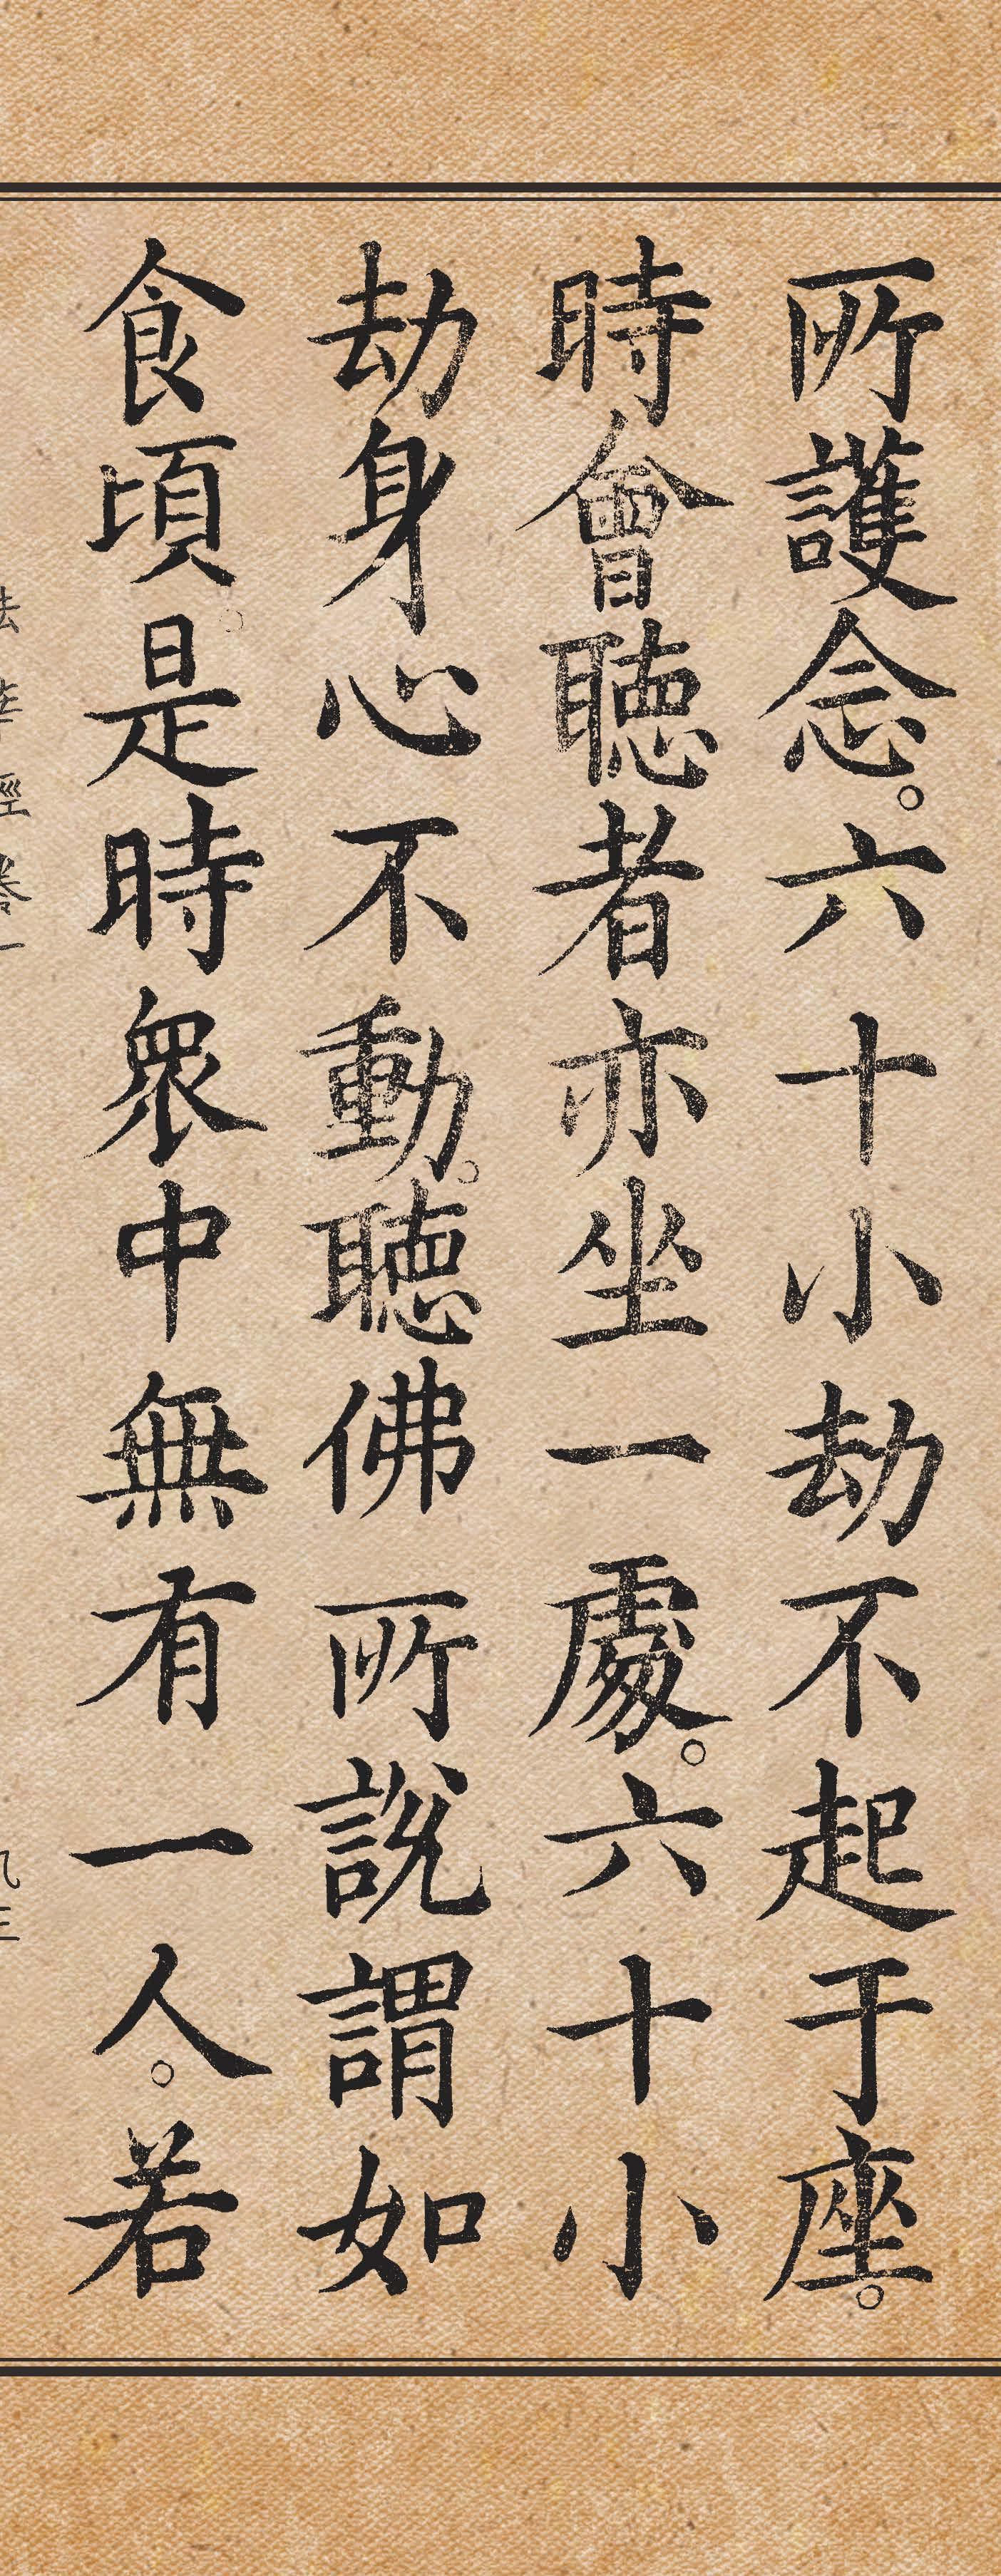 所護念。六十小劫不起于座。
時會聽者亦坐一處。六十小
劫身心不動。聽佛所說謂如
食頃。是時衆中無有一人。若
法華經卷一
九三